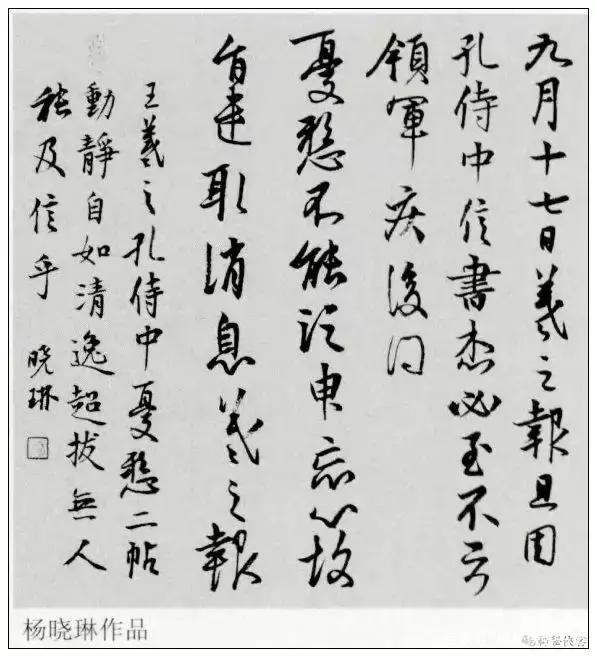 九月十七日羲之報且因
孔侍中信書想必至不知
領軍疾後問
憂懸不能須臾忘心故
旨遣取消息羲之報
王羲之孔侍中憂懸二帖
動靜自如清逸超拔無人
能及信乎 曉琳
杨晓琳作品